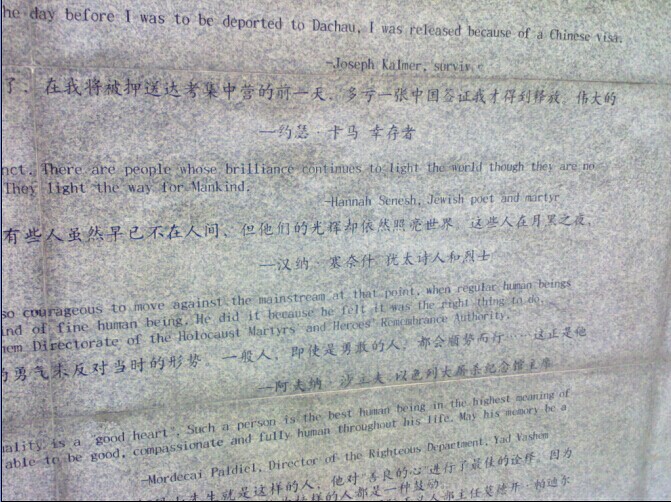 he day before I was to be deported to Dachau, I was released because of a Chinese visa.
—Joseph Kalmer, surviv
了．在我将被押送达考集中营的前一天，多亏一张中国签证我才得到释放．伟大的
—约瑟·卡马 幸存者
nct. There are people whose brilliance continues to light the world though they are no
They light the way for Mankind.
—Hannah Senesh, Jewish poet and martyr
有些人虽然早已不在人间，但他们的光辉却依然照亮世界．这些人在月黑之夜，
—汉纳·塞奈什 犹太诗人和烈士
so courageous to move against the mainstream at that point, when regular human beings
ind of fine human being. He did it because he felt it was the right thing to do.
hem Directorate of the Holocaust Martyrs' and Heroes' Remembrance Authority.
的勇气来反对当时的形势．一般人，即使是勇敢的人，都会顺势而行……这正是他
—阿夫纳·沙 夫 以色列大屠杀纪念馆主席
uality is a "good heart". Such a person is the best human being in the highest meaning of
able to be good, compassionate and fully human throughout his life. May his memory be a
—Mordecai Paldiel, Director of the Righteous Department, Yad Vashem
先生就是这样的人，他对"善良的心"进行了最佳的诠释．因为
样的人都是一种鼓励．
部主任莫德开·帕迪尔